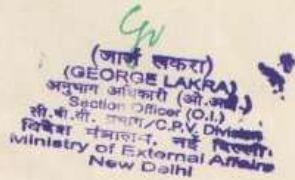 (जार्ज लकरा)
(GEORGE LAKRA)
अनुभाग अधिकारी (ओ.आई.)
Section Officer (O.I.)
सी.पी.वी. प्रभाग/C.P.V. Division
विदेश मंत्रालय, नई दिल्ली
Ministry of External Affairs
New Delhi